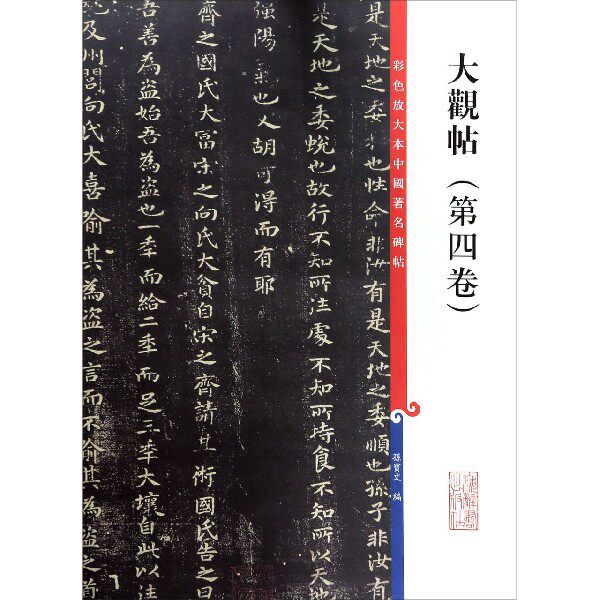 大觀帖（第四卷）
彩色放大本中國著名碑帖
孫寶文 編
是天地之委和也性命非汝有是天地之委順也孫子非汝有
是天地之委蛻也故行不知所往處不知所持食不知所以天地
強陽氣也人胡可得而有耶
齊之國氏大富宋之向氏大貧自宋之齊請其術國氏告之曰
吾善為盜始吾為盜也一季而給二季而足三季大壤自此以
及州閭向氏大喜喻其為盜之言而不喻其為盜之